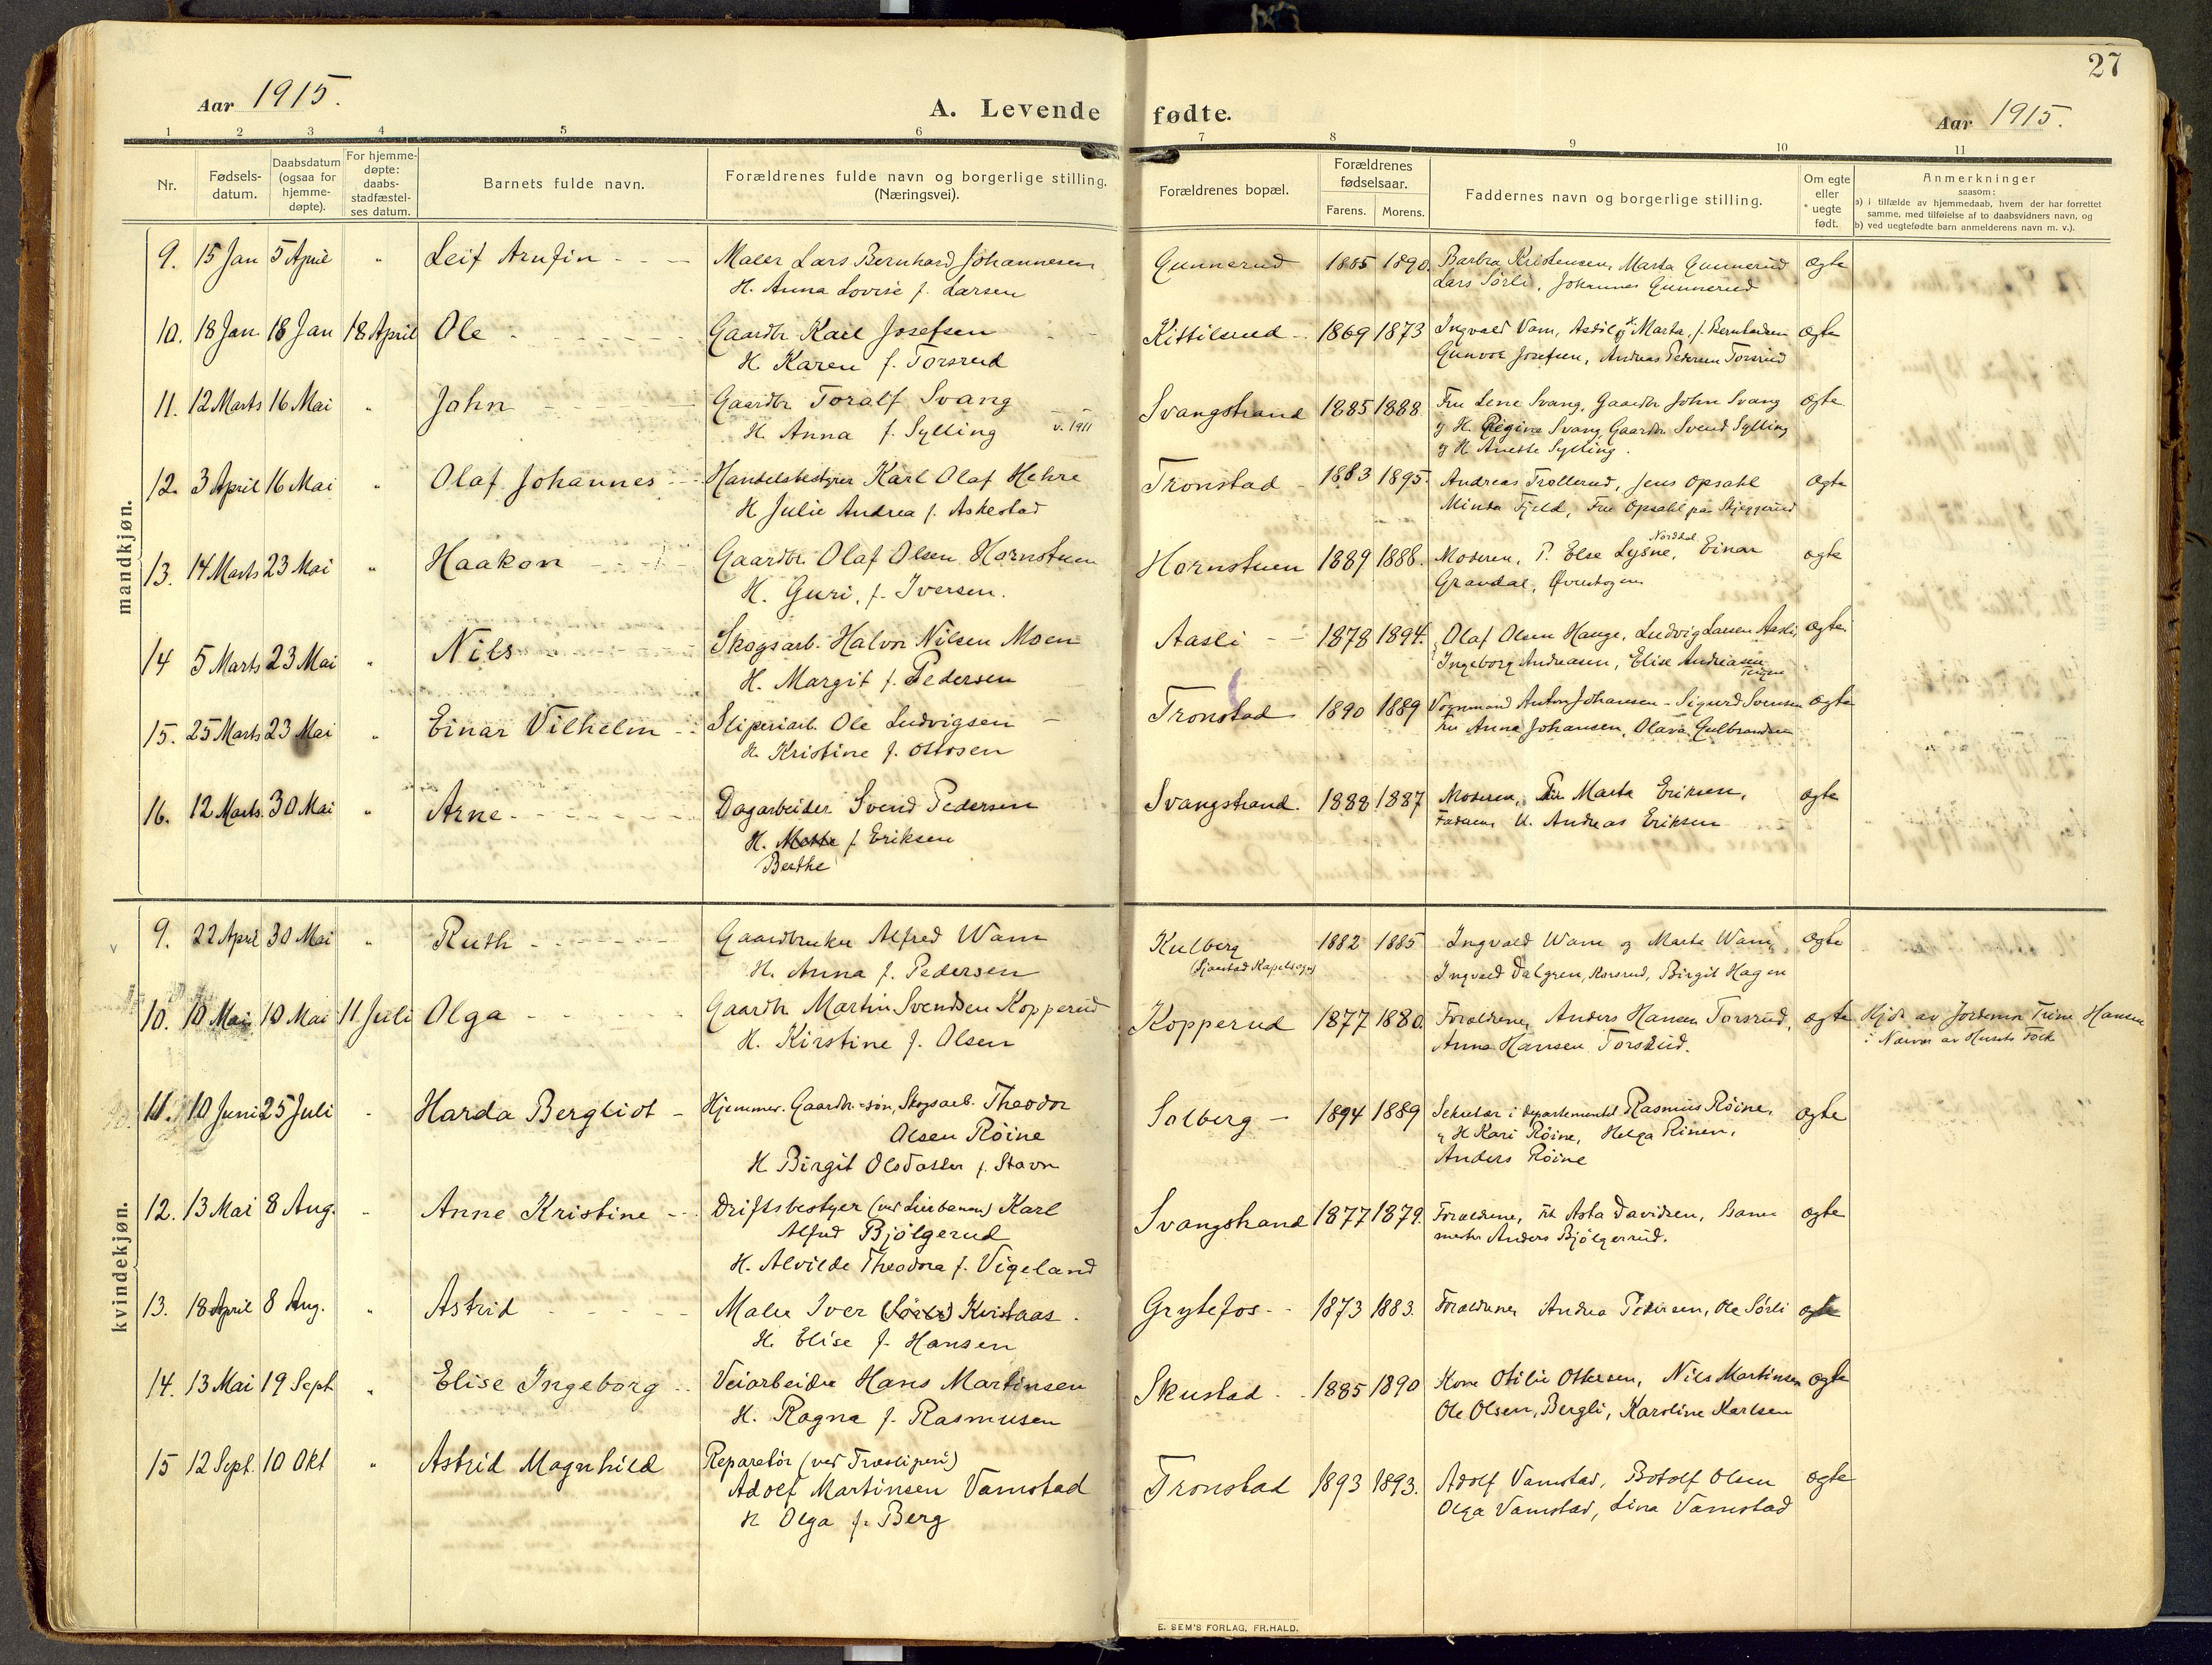 27
Aar 1915.
A. Levende fødte.
Aar 1915.
1 2 3 4 5 6 7 8 9 10 11
Nr.
Fødselsdatum.
Daabsdatum (ogsaa for hjemmedøpte).
For hjemmedøpte: daabsstadfæstelses datum.
Barnets fulde navn.
Forældrenes fulde navn og borgerlige stilling. (Næringsvei).
Forældrenes bopæl.
Forældrenes fødselsaar.
Farens. Morens.
Faddernes navn og borgerlige stilling.
Om egte eller * uegte født.
Anmerkninger
saasom:
a) i tilfælde av hjemmedaab, hvem der har forrettet samme, med tilføielse af to daabsvidners navn, og
b) ved uegtefødte barn anmelderens navn m. v.).
mandkjøn.
9. 15 Jan 5 April " Leif Arnfin Maler Lars Bernhard Johannesen Gunnerud 1885 1890. Barbra Kristensen, Marta Gunnerud ogte
H. Anna Lovise f. Larsen Lars Sørli, Johannes Gunnerud
10. 18 Jan. 18 Jan 18 April Ole Gaardbr Karl Josefsen Kittilsrud 1869 1873 Ingvald Vam, Marta, f. Berntsen ogte
H. Karen f. Torsrud Gunvor Josefsen, Andreas Pedersen Torsrud
11. 12 Marts 16 Mai " John Gaardbr Toralf Svang Svangstrand 1885 1888. Fru Lene Svang, Gaardbr John Svang ogte
H. Anna f. Sylling v. 1911 og H. Regine Svang Gaardbr. Svend Sylling
og H. Anette Sylling.
12. 3 April 16 Mai " Olaf Johannes Handelsbestyrer Karl Olaf Hehre Tronstad 1883 1895. Andreas Trollerud, Jens Opsahl ogte
H Julie Andrea f. Askestad Minda Fjeld, Fru Opsahl paa Skjeggerud
13. 14 Marts 23 Mai " Haakon Gaardbr. Olaf Olsen Hornstuen Hornstuen 1889 1888. Moderen, P. Else Lysne, Nordal Einar ogte
H. Guri, f. Iversen. Gravdal,
14 5 Marts 23 Mai " Nils Skogsarb. Halvor Nilsen Moen Aasli 1878 1894. Olaf Olsen Hauge, Ludvig Larsen Aasli, ogte
H. Margit f. Pedersen Ingeborg Andreasen, Elise Andreasen
15. 25 Marts 23 Mai " Einar Vilhelm Sliperiarb. Ole Ludvigsen Tronstad 1890 1889 Vognmand Anton Johansen - Sigurd Svensen ogte
H. Kristine f. Ottosen Fru Anna Johansen, Olava Gulbrandsen
16. 12 Marts. 30 Mai " Arne Dagarbeider Svend Pedersen Svangstrand. 1888 1887 Moderen, Marta Eriksen, ogte
H. Mette f. Eriksen Faderen, U. Andreas Eriksen
Berthe
kvindekjøn.
v 9. 22 April 30 Mai " Ruth Gaardbruker Alfred Wam Kulberg 1882 1885 Ingvald Wam og Marta Wam, ogte
H. Anna f. Pedersen (Sjaastad Kapelsogn) Ingvald Dalgren, Korsrud, Birgit Hagen
10. 10 Mai 10 Mai 11 Juli Olga Gaardbr. Martin Svendsen Kopperud Kopperud 1877 1880. Forældrene, Anders Hansen Torsrud, ogte Hjdt av Jordemor Trine Hansen
H. Kirstine f. Olsen Anna Hansen Torsrud. i Nærvær av Husets Folk
11. 10 Juni 25 Juli Harda Bergliot Hjemmev. Gaardbr.-søn, Skogsarb. Theodor Solberg 1894 1889 Sekretær i departementet Rasmus Röine, ogte
Olsen Röine og H Kari Röine, Helga Rinen,
H Birgit Olsdatter f. Stavn Anders Röine
12. 13 Mai 8 Aug. Anne Kristine Driftsbestyrer (ved Lierbanen) Karl Svangstrand 1877 1879. Forældrene, Frk Asta Davidsen, Banemester Anders Bjölgerud. ogte
Alfred Bjölgerud
H. Alvilde Theodora f. Vigeland
13. 18 April 8 Aug. " Astrid Maler Iver (Sörli) Kvistaas Grytefos 1873 1883. Forældrene Andrea Pedersen, Ole Sörli ogte
H. Elise f. Hansen
14. 13 Mai 19 Sept " Elise Ingeborg Veiarbeider Hans Martinsen Skustad 1885 1890 Kone Otilie Ottersen, Nils Martinsen ogte
H. Ragna f. Rasmusen Ole Olsen, Bergli, Karoline Karlsen
15 12 Sept. 10 Okt " Astrid Magnhild Reparetör (ved Træsliperi) Tronstad 1893 1893. Adolf Vamstad, Botolf Olsen ogte
Adolf Martinsen Vamstad Olga Vamstad, Lina Vamstad
H Olga f. Berg
E. SEM'S FORLAG, FR.HALD.